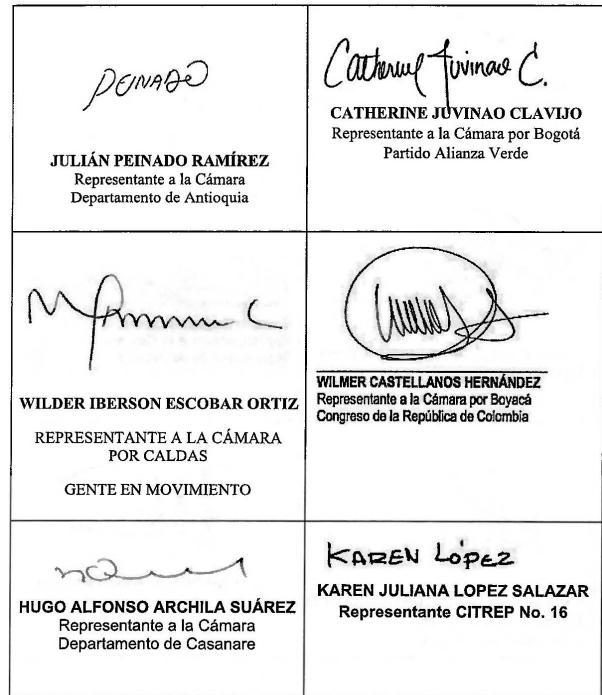 PEINADO
JULIÁN PEINADO RAMÍREZ
Representante a la Cámara
Departamento de Antioquia
Catherine Juvinao C.
CATHERINE JUVINAO CLAVIJO
Representante a la Cámara por Bogotá
Partido Alianza Verde
WILDER IBERSON ESCOBAR ORTIZ
REPRESENTANTE A LA CÁMARA
POR CALDAS
GENTE EN MOVIMIENTO
WILMER CASTELLANOS HERNÁNDEZ
Representante a la Cámara por Boyacá
Congreso de la República de Colombia
HUGO ALFONSO ARCHILA SUÁREZ
Representante a la Cámara
Departamento de Casanare
KAREN LÓPEZ
KAREN JULIANA LOPEZ SALAZAR
Representante CITREP No. 16